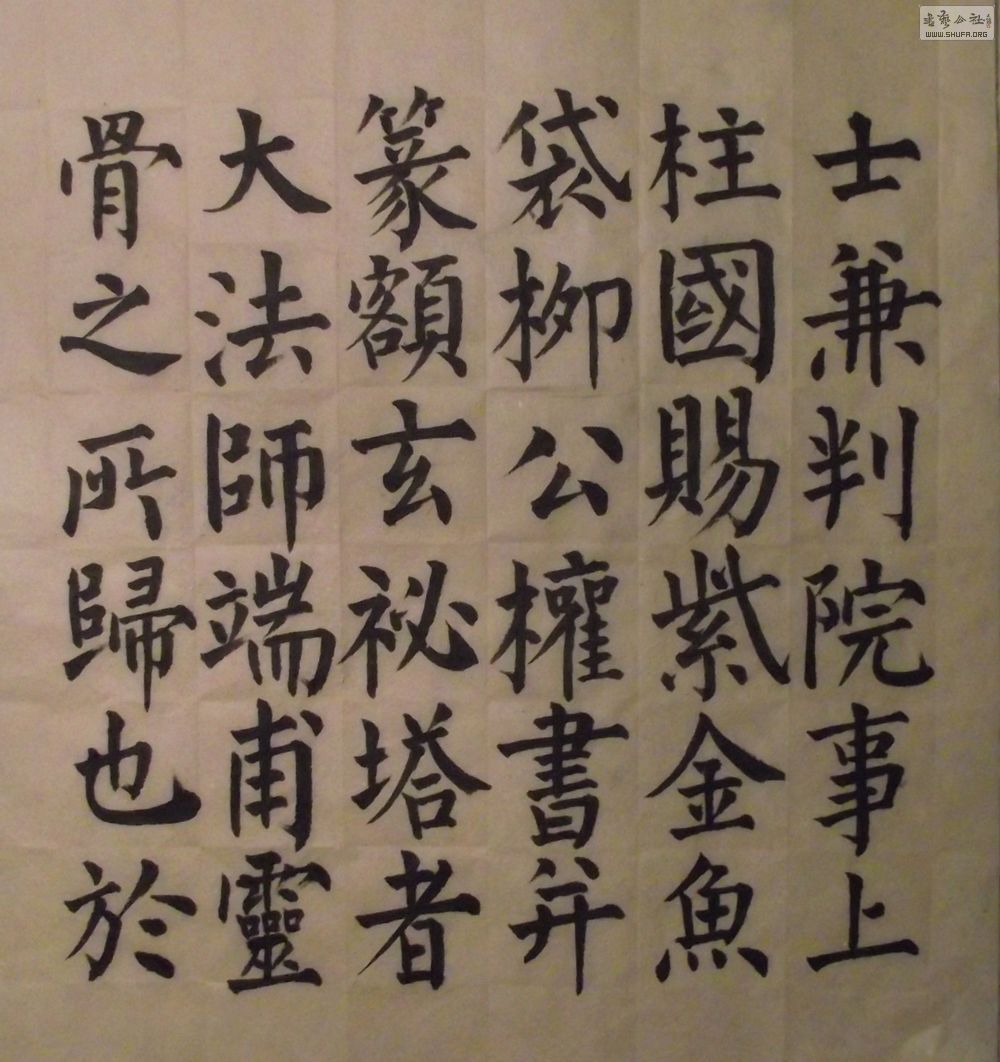 士兼判院事上
柱國賜紫金魚
袋柳公權書并
篆額玄祕塔者
大法師端甫靈
骨之所歸也於
书艺公社
WWW.SHUFA.ORG